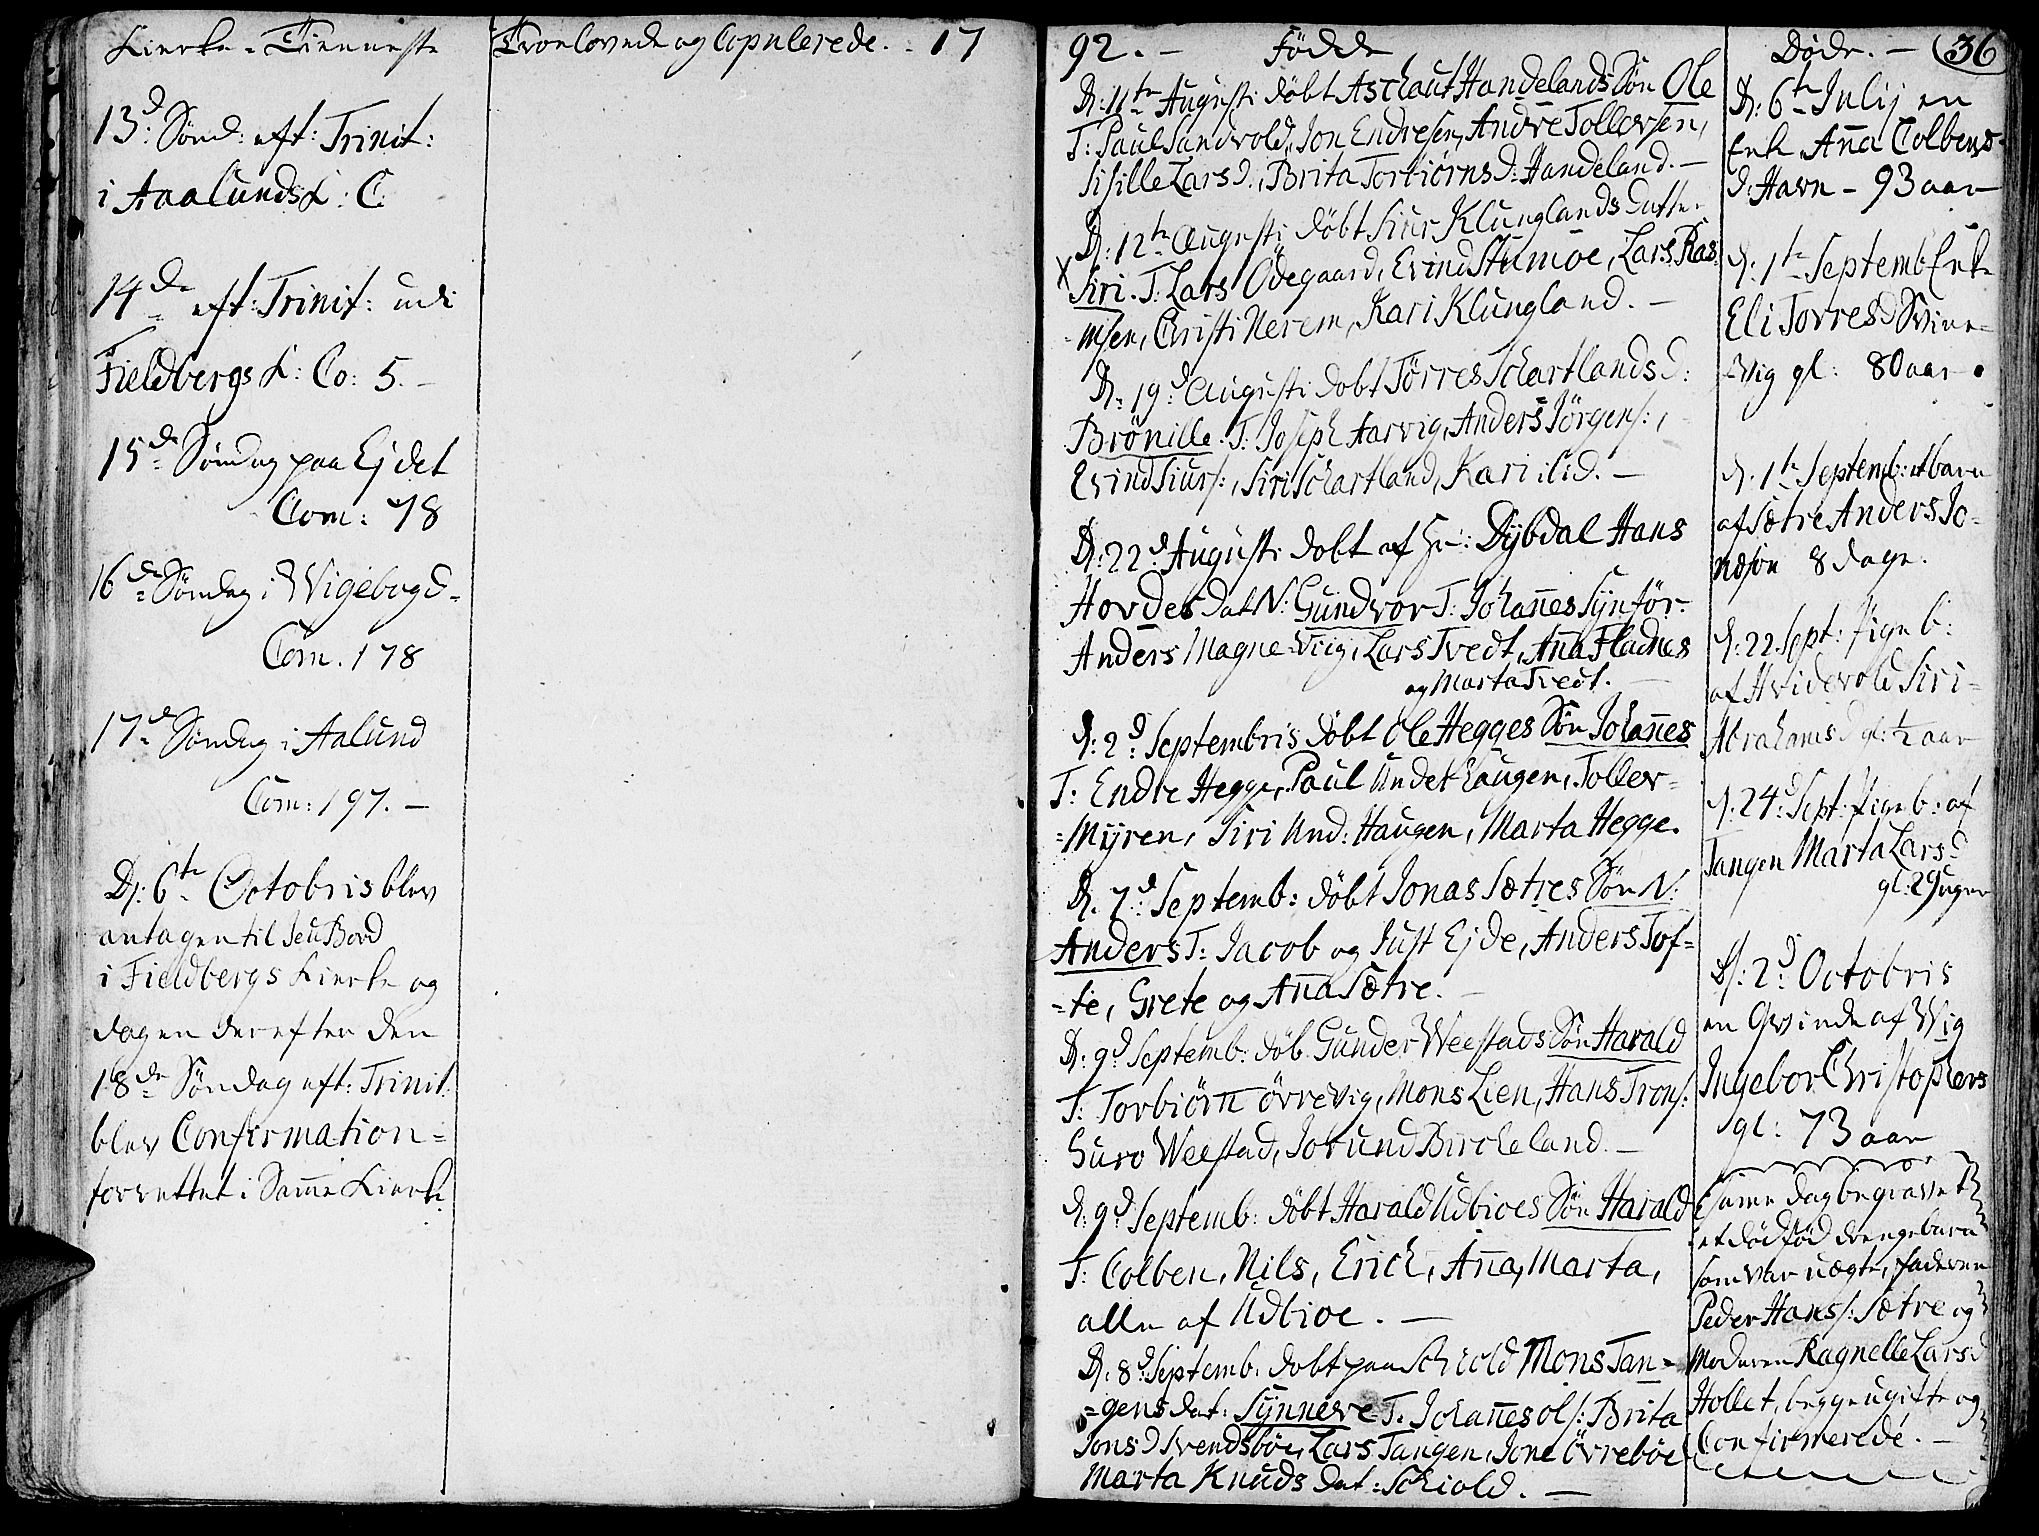 Kierke-Tienneste
13d: Sønd: eft: Trinit:
i Aaalunds K: C:
14de eft: Trinit: udi
Fieldbergs K: Co: 5. -
15de Søndag paa Ejdet
Com: 78
16de Søndag i Wigebogd-
Com. 178
17de Søndag i Aalund
Com: 197. -
D: 6te Octobris blev
antagen til
i Fieldbergs Kierke og
dagen derefter den
18de Søndag eft: Trinit:
blev Confirmation=
forrettet i Samme Kierke
Troelovede og Copulerede. - 17
92. - Fødde
D: 11te Augusti døbt Aschaut Handelands Søn Ole
T: Paul Sandvold, Jon Endresen, Andre Tollevsen,
Sisille Lars D:, Brita Torbiørns D: Handeland. -
D: 12te Augusti døbt Siur Klunglands datter
x Siri. T: Lars Ødegaard, Evind Stumoe, Lars Ras
=msen, Christi Nerem, Kari Klungland. -
D: 19d Augusti døbt Tørres Schartlands D:
Brönille. T: Joseph Aarvig, Anders Jørgens:,
Evind Siurs:, Siri Schartland, Kari ibid. -
D: 22d Augusti døbt af Hr: Dybdal Hans
Hovdes dat N: Gundvor T: Johannes Synfør-
Anders Magne Viig, Lars Tvedt, Anna Fladnes
og Marta Tvedt. -
D: 2d Septembris døbt Ole Hegges Søn Johannes
T: Endre Hegge, Paul Undet Haugen, Tollev-
=Mÿren, Siri Und: Haugen, Marta Hegge.
D. 7d Septemb: døbt Jonas Sætres Søn N:
Anders T: Jacob og Just Ejde, Anders Tof=
=te, Grete og Anna Sætre. -
D. 9d Septemb: døb. Gunder Weestads Søn Harald
T: Torbiörn Örrevig, Mons Lien, Hans Trons:
Guro Weestad, Jorund Bircheland. -
D: 9d Septemb: døbt Harald Udbioes Søn Harald
T: Colben, Nils, Erich, Anna, Marta,
alle af Udbioe. -
D. 8d Septemb. døbt paa Schiold Mons Tan=
=gens dat: Synneve T: Johannes Ols: Brita
Jons D Svendsböe, Lars Tangen, Jone Övreböe
Marta Knuds dat: Schiold. -
Døde. - 36
D: 6te Julij en
Enke Anna Colbens-
D. Havn - 93 aar
D: 1te Septemb Enke
Eli Torres D Svine-
Wig gl: 80 aar.
D. 1te Septemb: et barn
af Sætre Anders Jo=
næsøn 8 dage.
D: 22. Sept: Pige b:
af Hvidevold Siri-
Abrahams D gl: 1/2 aar
D. 24d Sept: Pige b: af
Tangen Marta Lars D
gl: 29 uger
D: 2d Octobris
en Qvinde af Wig
Ingebor Christophers
gl: 73 aar
Samme dag begravet
et dødfød drengebarn
som var uægte, faderen
Peder Hans: Sætre og
Moderen Ragnelle Lars D
Hollet, begge ugifte og
Confirmerede. -